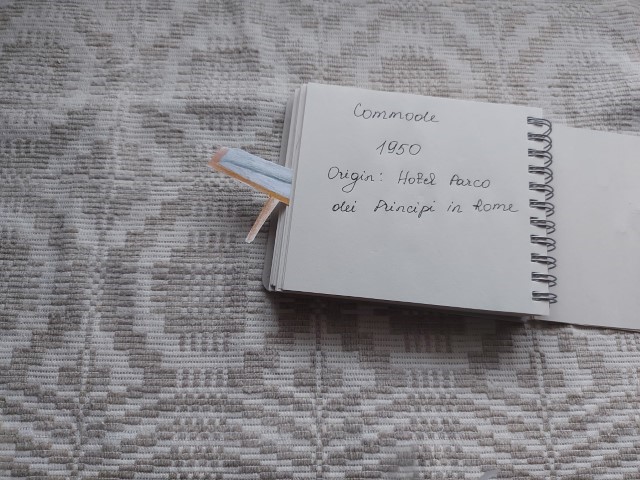 Commode
1950
Origin: Hotel Parco
dei Principi in Rome